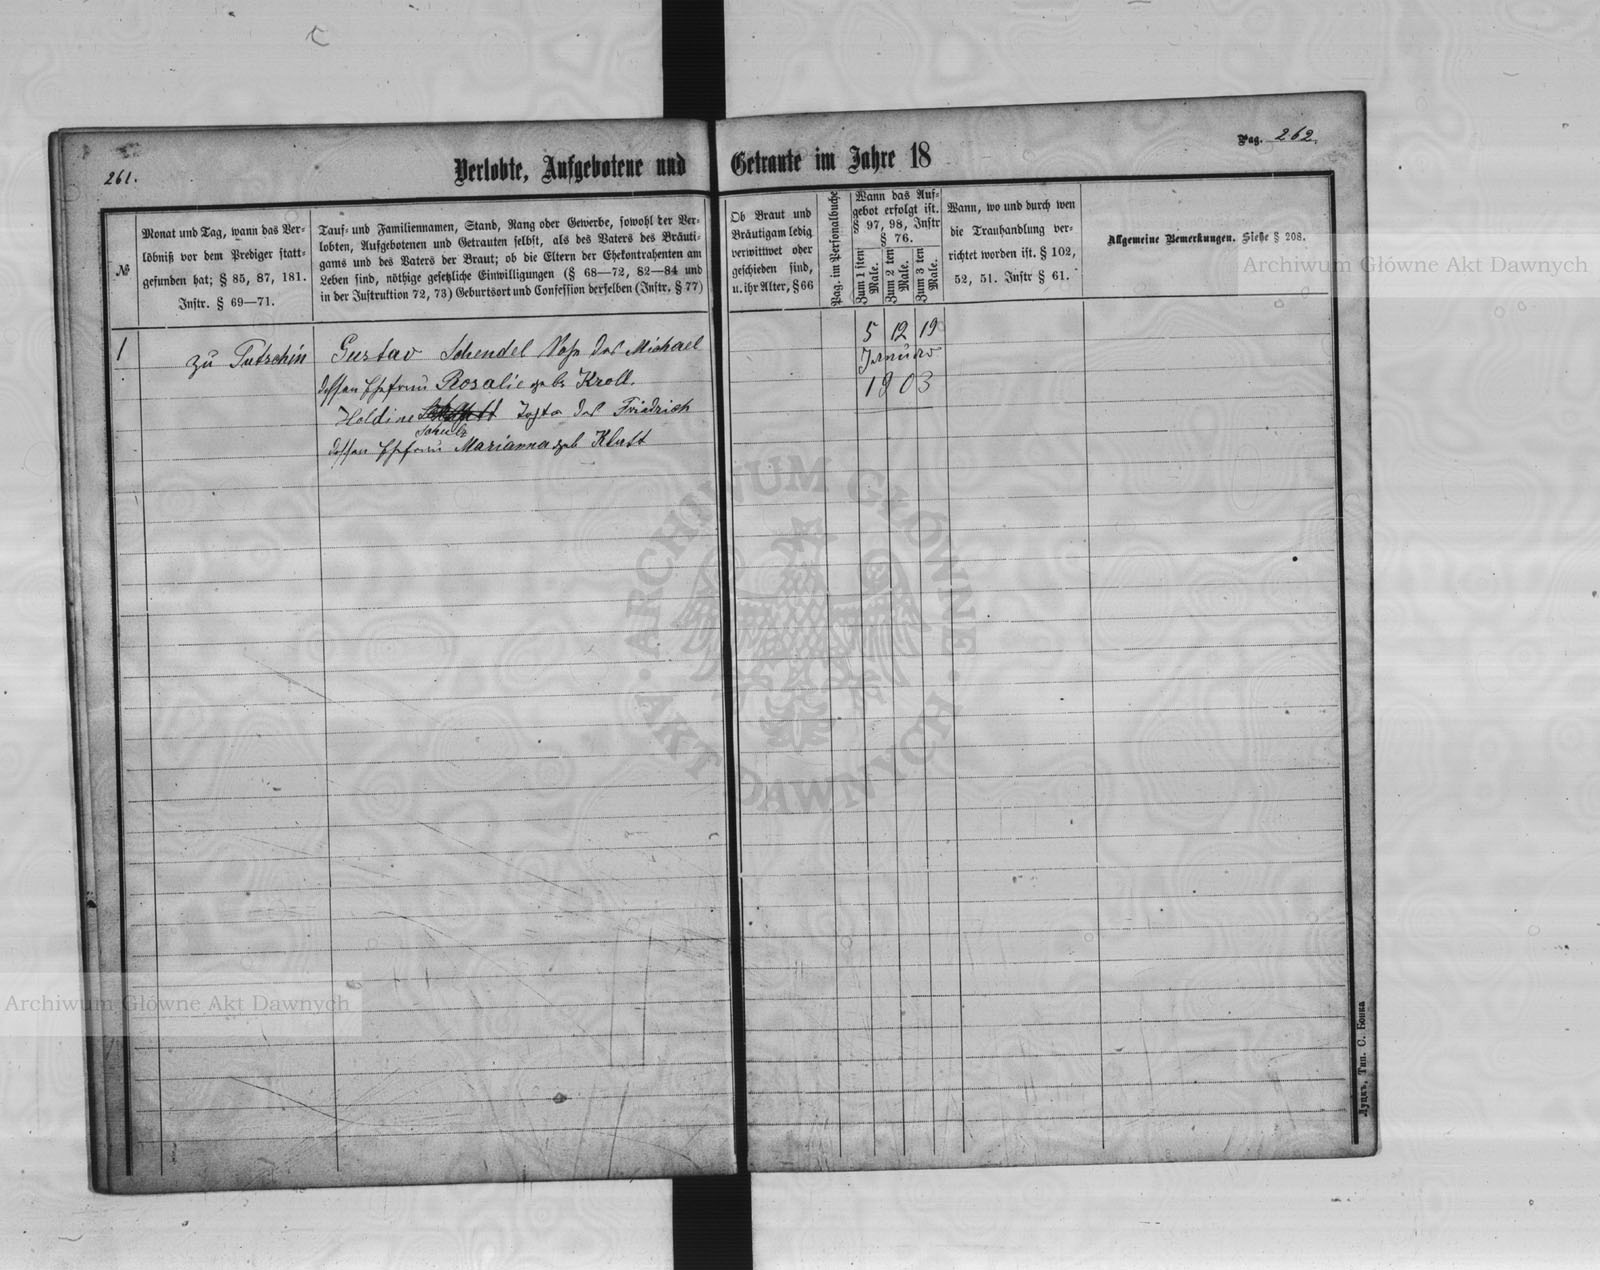 261.
Pag. 262.
Verlobte, Aufgebotene und Getraute im Jahre 18
№
Monat und Tag, wann das Ver-
löbniß vor dem Prediger statt-
gefunden hat; § 85, 87, 181.
Instr. § 69—71.
Tauf- und Familiennamen, Stand, Rang oder Gewerbe, sowohl der Ver-
lobten, Aufgebotenen und Getrauten selbst, als des Vaters des Bräuti-
gams und des Vaters der Braut; ob die Eltern der Ehekontrahenten am
Leben sind, nöthige gesetzliche Einwilligungen (§ 68—72, 82—84 und
in der Instruktion 72, 73) Geburtsort und Confession derselben (Instr. § 77)
Ob Braut und
Bräutigam ledig
verwittwet oder
geschieden sind,
u. ihr Alter, § 66
Pag. im Personalbuche
Wann das Auf-
gebot erfolgt ist.
§ 97, 98, Instr
§ 76.
Zum 1 sten
Male.
Zum 2 ten
Male.
Zum 3 ten
Male.
Wann, wo und durch wen
die Trauhandlung ver-
richtet worden ist. § 102,
52, 51. Instr § 61.
Allgemeine Bemerkungen. Siehe § 208.
1
zu Tutschin
Gustav Schendel Sohn des Michael
dessen Ehefrau Rosalie geb. Kroll.
Holdine Tochter des Friedrich
Schulz
dessen Ehefrau Marianna geb Klatt
5 12 19
Januar
1903
Луцкъ, Тип. С. Бонка
Archiwum Główne Akt Dawnych
ARCHIWUM GŁÓWNE
AKT DAWNYCH
Archiwum Główne Akt Dawnych